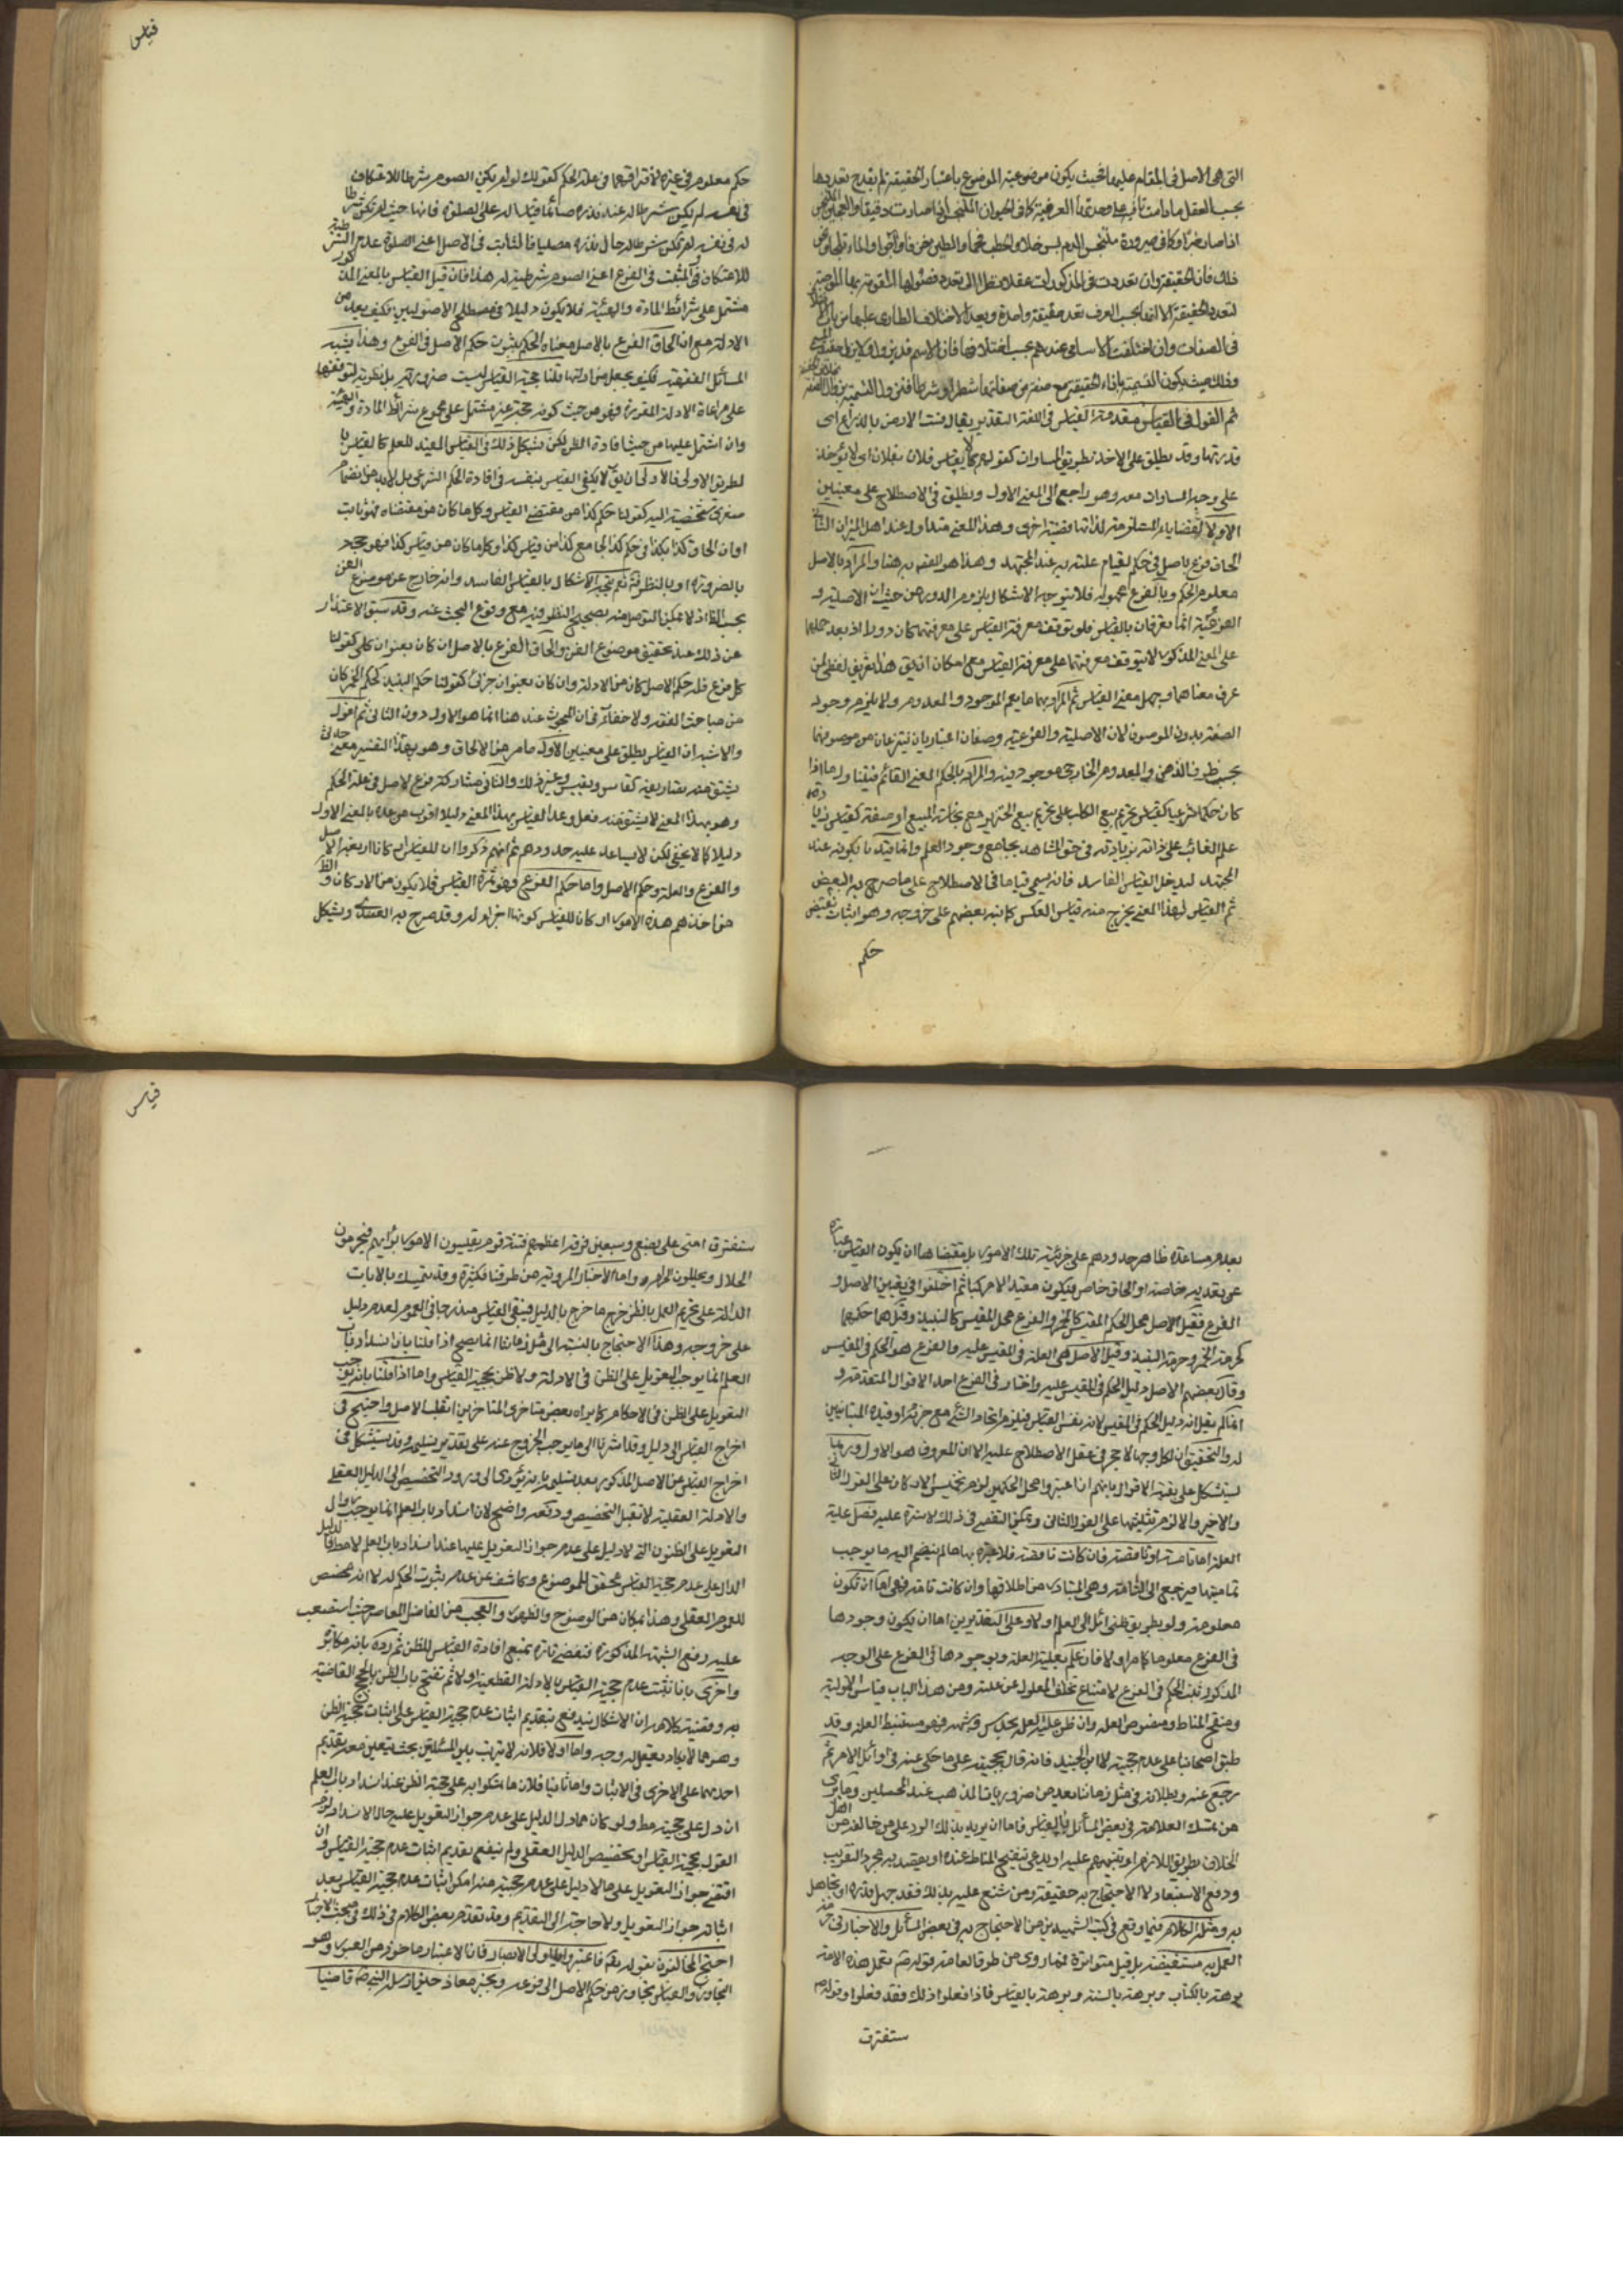 التى هى الاصل فى المقام عليها بحيث يكون موضوعية الموضوع باعتبار الحقيقة لم يقدح تعددها
بحسب العقل ما دامت
اذا صار
ذلك فان الحقيقة وان تعددت فى المذكورات عقلا نظرا الى تعدد فصولها المقومة بها الموجبة
لتعدد الحقيقة الا انها بحسب العرف تعد حقيقة واحدة ويعد الاختلاف الطارى عليها من باب
فى الصفات وان اختلفت الاسامى عندهم بحسب اختلافها فان الاسم قد يزول ولا يزول
وذلك حيث يكون التسمية بازاء الحقيقة مع صفة من صفاتها شطرا او شرطا فتزول التسمية بزوال الصفة
ثم القول فى القياس مقدمة القياس فى اللغة التقدير يقال قست الارض بالذراع اى
قدرتها وقد يطلق على الاخذ بطريق المساوات كقولهم لا يقاس فلان بفلان اى لا يؤخذ
على وجه المساوات معه وهو راجع الى المعنى الاول ويطلق فى الاصطلاح على معنيين
الاول القضايا المستلزمة لذاتها قضية اخرى وهذا المعنى متداول عند اهل الميزان الثانى
الحاق فرع باصل فى حكم لقيام علته به عند المجتهد وهذا هو المقصود به هنا والمراد بالاصل
معلوم الحكم وبالفرع مجهوله فلا يتوجه الاشكال بلزوم الدور من حيث ان الاصلية و
الفرعية انما تعرفان بالقياس فلو توقف معرفة القياس على معرفتهما كان دورا اذ بعد حملهما
على المعنى المذكور لا يتوقف معرفتهما على معرفة القياس مع امكان ان يق هذا تعريف لفظى لمن
عرف معناهما وجهل معنى القياس ثم المراد بهما ما يعم الموجود والمعدوم ولا يلزم وجود
الصفة بدون الموصوف لان الاصلية والفرعية وصفان اعتباريان ينتزعان من موصوفهما
بحسب ظرف الذهن والمعدوم الخارجى موجود فيه والمراد بالحكم المعنى القائم فيتناول ما اذا
كان حكما شرعيا كقياس تحريم بيع الكلب على تحريم بيع الخنزير مع نجاسة المبيع او صفة كقياس زيادة
علم الغائب على ذاته بزيادته فى حق الشاهد بجامع وجود العلم وانما قيدنا بكونه عند
المجتهد ليدخل القياس الفاسد فانه يسمى قياسا فى الاصطلاح على ما صرح به البعض
ثم القياس لهذا المعنى يخرج منه قياس العكس كما نبه بعضهم على خروجه وهو اثبات نقيض
حكم
قياس
حكم معلوم فى غيره لافتراقهما فى علة الحكم كقولك لو لم يكن الصوم شرطا للاعتكاف
فى نفسه لم يكن شرطا له عند نذره صائما قياسا له على الصلوة فانها حيث لم تكن شرطا
له فى نفسه لم تكن شرطا له حال نذره مصليا فالثابت فى الاصل اعنى الصلوة عدم الشرطية
للاعتكاف والمثبت فى الفرع اعنى الصوم شرطيته له هذا فان قيل القياس بالمعنى المذكور
مشتمل على شرائط المادة والهيئة فلا يكون دليلا فى مصطلح الاصوليين فكيف يعد من
الادلة مع ان الحاق الفرع بالاصل معناه الحكم بثبوت حكم الاصل فى الفرع وهذا يشبه
المسائل الفقهية فكيف يجعل من ادلتها قلنا حجية القياس ليست ضرورية بل نظرية لتوقفها
على مراعاة الادلة المقررة فهو من حيث كونه حجة غير مشتمل على مجموع شرائط المادة والهيئة
وان اشتمل عليها من حيث افادة الظن لكن يشكل ذلك فى القياس المفيد للعلم كالقياس با
لطريق الاولى فالاولى ان يق لا يكفى القياس بنفسه فى افادة الحكم الشرعى بل لابد من انضمام
صغرى شخصية اليه كقولنا حكم كذا من مقتضى القياس وكل ما كان من مقتضاه فهو ثابت
او ان الحاق كذا بكذا فى حكم كذا لجامع كذا من قياس كذا وكل ما كان من قياس كذا فهو حجة
بالضرورة او بالنظر نعم يتجه الاشكال بالقياس الفاسد وانه خارج عن موضوع الفن
بحسب الظاهر اذ لا يمكن التوصل منه بصحيح النظر فيه مع وقوع البحث عنه وقد سبق الاعتذار
عن ذلك عند تحقيق موضوع الفن والحاق الفرع بالاصل ان كان بعنوان كلى كقولنا
كل فرع فله حكم الاصل كان من الادلة وان كان بعنوان جزئى كقولنا حكم النبيذ كحكم الخمر كان
من مباحث الفقه ولا خفاء فى ان المبحوث عنه هنا انما هو الاول دون الثانى ثم اقول
والاشبه ان القياس يطلق على معنيين الاول ما مر من الالحاق وهو بهذا التفسير معنى حدثى
يشتق منه تصاريفه كقاس ويقيس وغير ذلك والثانى مشاركة فرع لاصل فى علة الحكم
وهو بهذا المعنى لا يشتق منه فعل وعد القياس بهذا المعنى دليلا اقرب من عده بالمعنى الاول
دليلا كما لا يخفى لكن لا يساعد عليه حدودهم ثم انهم ذكروا ان للقياس اركانا اربعة الاصل
والفرع والعلة وحكم الاصل واما حكم الفرع فهو ثمرة القياس فلا يكون من الاركان والظ
من اخذهم هذه الامور اركان للقياس كونها اجزاء له وقد صرح به العضدى ويشكل
بعدم مساعدة ظاهر حدودهم على جزئية تلك الامور بل مقتضاها ان يكون القياس عبارة
عن تقدير خاص او الحاق خاص فيكون مقيدا لا مركبا ثم اختلفوا فى تعيين الاصل و
الفرع فقيل الاصل محل الحكم المقيس كالخمر والفرع محل المقيس كالنبيذ وقيل هما حكمهما
كحرمة الخمر وحرمة النبيذ وقيل الاصل هى العلة فى المقيس عليه والفرع هو الحكم فى المقيس
وقال بعضهم الاصل دليل الحكم فى المقيس عليه واختار فى الفرع احد الاقوال المتقدمة و
انما لم يقل انه دليل الحكم فى المقيس لانه نفس القياس فيلزم اتحاد الشئ مع جزئه او قيده المتباينين
له والتحقيق ان لكل وجها لا حجر فى عقل الاصطلاح عليه الا ان المعروف هو الاول وربما
يستشكل على بقية الاقوال بانهم ان اعتبروا محل الحكمين لزم تخميس الاركان على القول الثانى
والاخير والا لزم تثليثها على القول الثانى ويمكن التفصى فى ذلك لا سترة عليه فصل علية
العلة اما تامة او ناقصة فان كانت ناقصة فلا عبرة بها ما لم ينضم اليه ما يوجب
تماميتها فيرجع الى التامة وهى المتبادر من اطلاقها وان كانت تامة فهى اما ان تكون
معلومة ولو بطريق ظنى ائل الى العلم اولا وعلى التقديرين اما ان يكون وجودها
فى الفرع معلوما كما مر اولا فان علم بعلية العلة وبوجودها فى الفرع على الوجه
المذكور ثبت الحكم فى الفرع لامتناع تخلف المعلول عن علته ومن هذا الباب قياس الاولوية
ومنقح المناط ومنصوص العلة وان ظن علية العلة بحدس وشبهه فهو مستنبط العلة وقد
طبق اصحابنا على عدم حجيته الا ابن الجنيد فانه قال بحجيته على ما حكى عنه فى اوائل الامر ثم
رجع عنه وبطلانه فى مثل زماننا يعد من ضروريات المذهب عند المحصلين وما يرى
من تمسك العلامة فى بعض المسائل بالقياس فاما ان يريد بذلك الرد على من خالفه من اهل
الخلاف بطريق الالزام او تنبيههم عليه او يدعى تنقيح المناط عنده او يقصد به مجرد التقريب
ودفع الاستبعاد لا الاحتجاج به حقيقة ومن شنع عليه بذلك فقد جهل قدره او تجاهل
به ومثل الكلام فيما وقع فى كتب الشهيدين من الاحتجاج به فى بعض المسائل والاخبار فى حرمة
العمل به مستفيضة بل قيل متواترة فمما روى من طرق العامة قوله ص تعمل هذه الامة
برهة بالكتاب وبرهة بالسنة وبرهة بالقياس فاذا فعلوا ذلك فقد ضلوا وقوله ص
ستفترق
قياس
ستفترق امتى على بضع وسبعين فرقة اعظمهم فتنة قوم يقيسون الامور برأيهم فيحرمون
الحلال ويحللون الحرام واما الاخبار المروية من طرقنا فكثيرة وقد يتمسك بالايات
الدالة على تحريم العمل بالظن خرج ما خرج بالدليل فيبقى القياس مندرجا فى العموم لعدم دليل
على خروجه وهذا الاحتجاج بالنسبة الى مثل زماننا انما يصح اذا قلنا بان انسداد باب
العلم انما يوجب التعويل على الظن فى الادلة ولا ظن بحجية القياس واما اذا قلنا بانه يوجب
التعويل على الظن فى الاحكام كما يراه بعض متاخرى المتاخرين انقلب الاصل واحتيج فى
اخراج القياس الى دليل وقد اشرنا الى ما يوجب الخروج عنه على تقدير تسليمه وقد يستشكل فى
اخراج القياس عن الاصل المذكور بعد تسليمه بانه يؤدى الى ورود التخصيص الى الدليل العقلى
والادلة العقلية لا تقبل التخصيص ودفعه واضح لان انسداد باب العلم انما يوجب جواز
التعويل على الظنون التى لا دليل على عدم جواز التعويل عليها عند انسداد باب العلم لا مطلقا فالدليل
الدال على عدم حجية القياس محقق للموضوع وكاشف عن عدم ثبوت الحكم له لا انه مخصص
للعموم العقلى وهذا بمكان من الوضوح والظهور والعجب من الفاضل المعاصر حيث استصعب
عليه دفع الشبهة المذكورة فتفصى تارة بمنع افادة القياس للظن ثم رده بانه مكابرة
واخرى بانا نثبت عدم حجية القياس بالادلة القطعية اولا ثم تفتح باب الظن بالحجج القاضية
به وقضية كلامه ان الاشكال يندفع بتقديم اثبات عدم حجية القياس على اثبات حجية الظن
وهو مما لا يكاد يعقل له وجه واما اولا فلانه لا ترتب بين المسئلتين بحيث يتعين معه تقديم
احدهما على الاخرى فى الاثبات واما ثانيا فلان ما تمسكوا به على حجية الظن عند انسداد باب العلم
ان دل على حجيته مط ولو كان مما دل الدليل على عدم جواز التعويل عليه حال الانسداد لزم
القول بحجية القياس او تخصيص الدليل العقلى ولم ينفع تقديم اثبات عدم حجية القياس وان
اقتضى جواز التعويل على ما لا دليل على عدم حجيته منه امكن اثبات عدم حجية القياس بعد
اثباته جواز التعويل ولا حاجة الى التقديم وقد تقدم بعض الكلام فى ذلك فى مبحث الاخبار
احتج المخالفون بقوله تعم فاعتبروا يا اولى الابصار فان الاعتبار ماخوذ من العبور وهو
التجاوز والقياس تجاوز من حكم الاصل الى فرعه وبخبر معاذ حيث ارسله النبى ص قاضيا